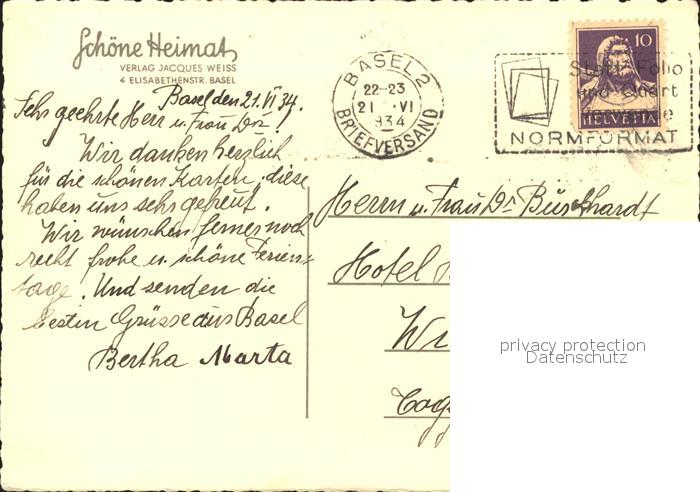 Schöne Heimat
VERLAG JACQUES WEISS
4 ELISABETHENSTR. BASEL
Basel den 21. VI 34.
Sehr geehrte Herr u. Frau Dr!
Wir danken herzlich
für die schönen Karten, diese
haben uns sehr gefreut.
Wir wünschen ferner noch
recht frohe u. schöne Ferien-
tage. Und senden die
besten Grüsse aus Basel
Bertha Marta
BASEL 2
22-23
21 VI
934
BRIEFVERSAND
10
HELVETIA
Statt Folio
und Quart
NORMFORMAT
Herrn u. Frau Dr Burckhardt
Hotel
privacy protection
Datenschutz